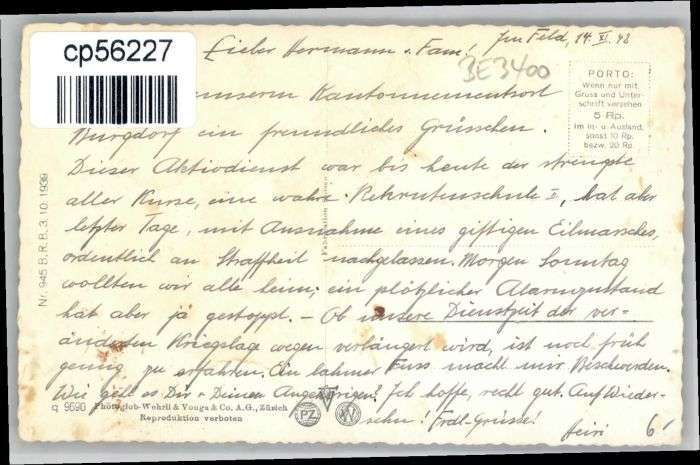 cp56227
Lieber Hermann u. Fam! Im Feld, 14. XI. 42
BE3400
PORTO:
Wenn nur mit
Gruss und Unter-
schrift versehen
5 Rp.
Im In- u. Ausland,
sonst 10 Rp.
bezw. 20 Rp.
unserm Kantonnementsort
Burgdorf ein freundliches Grüsschen.
Dieser Aktivdienst war bis heute der strengste
aller Kurse, eine wahre Rekrutenschule II, hat aber
letzter Tage, mit Ausnahme eines giftigen Eilmarsches,
ordentlich an Straffheit nachgelassen. Morgen Sonntag
wollten wir alle heim; ein plötzlicher Alarmzustand
hat aber ja gestoppt. – Ob unsere Dienstzeit der ver-
änderten Kriegslage wegen verlängert wird, ist noch früh
genug zu erfahren. Ein lahmer Fuss macht mir Beschwerden.
Wie geht es Dir u. Deinen Angehörigen? Ich hoffe, recht gut. Auf Wieder-
sehn! Frdl. Grüsse!
Heiri
6.-
Nr. 945 B.R.B. 3. 10. 1939
q 9690 Photoglob-Wehrli & Vouga & Co. A.G., Zürich
Reproduktion verboten
PZ